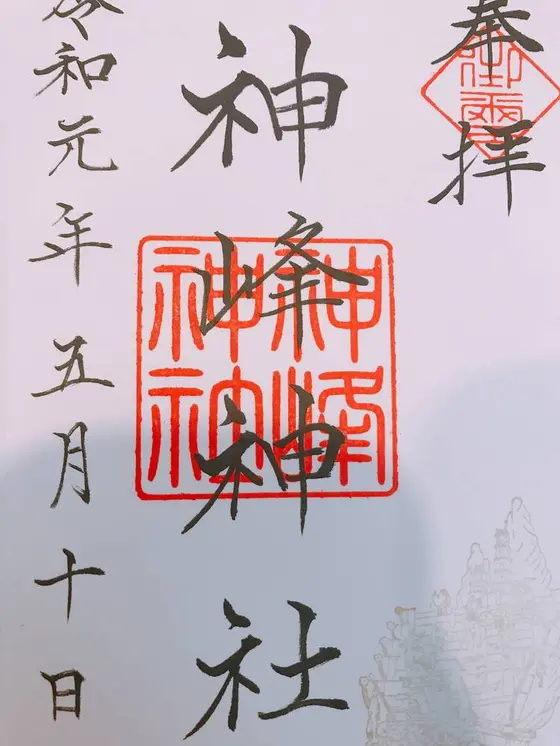 奉拝
神峰神社
令和元年 五月十日
神峰
神社